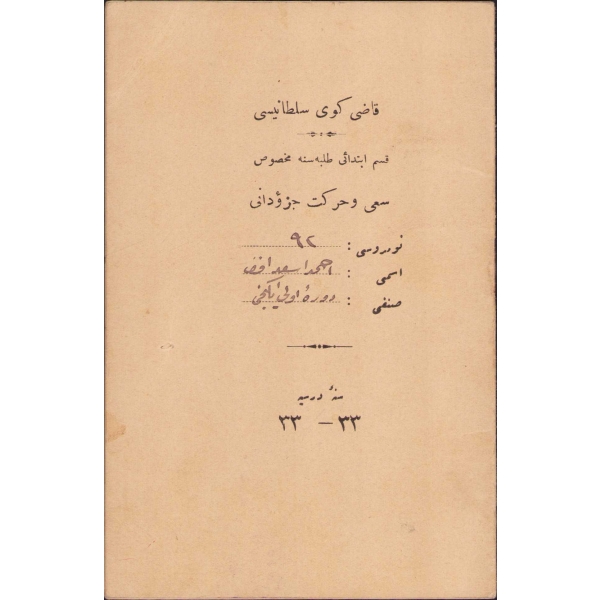 قاضی کوی سلطانیسی
قسم ابتدائی طلبه سنه مخصوص
سعی و حرکت جزؤدانی
نومروسی : ٩٢
اسمی : احمد اسعد افندی
صنفی : دورهٔ اولی ایکنجی
سنهٔ درسیه
٣٣ — ٣٣